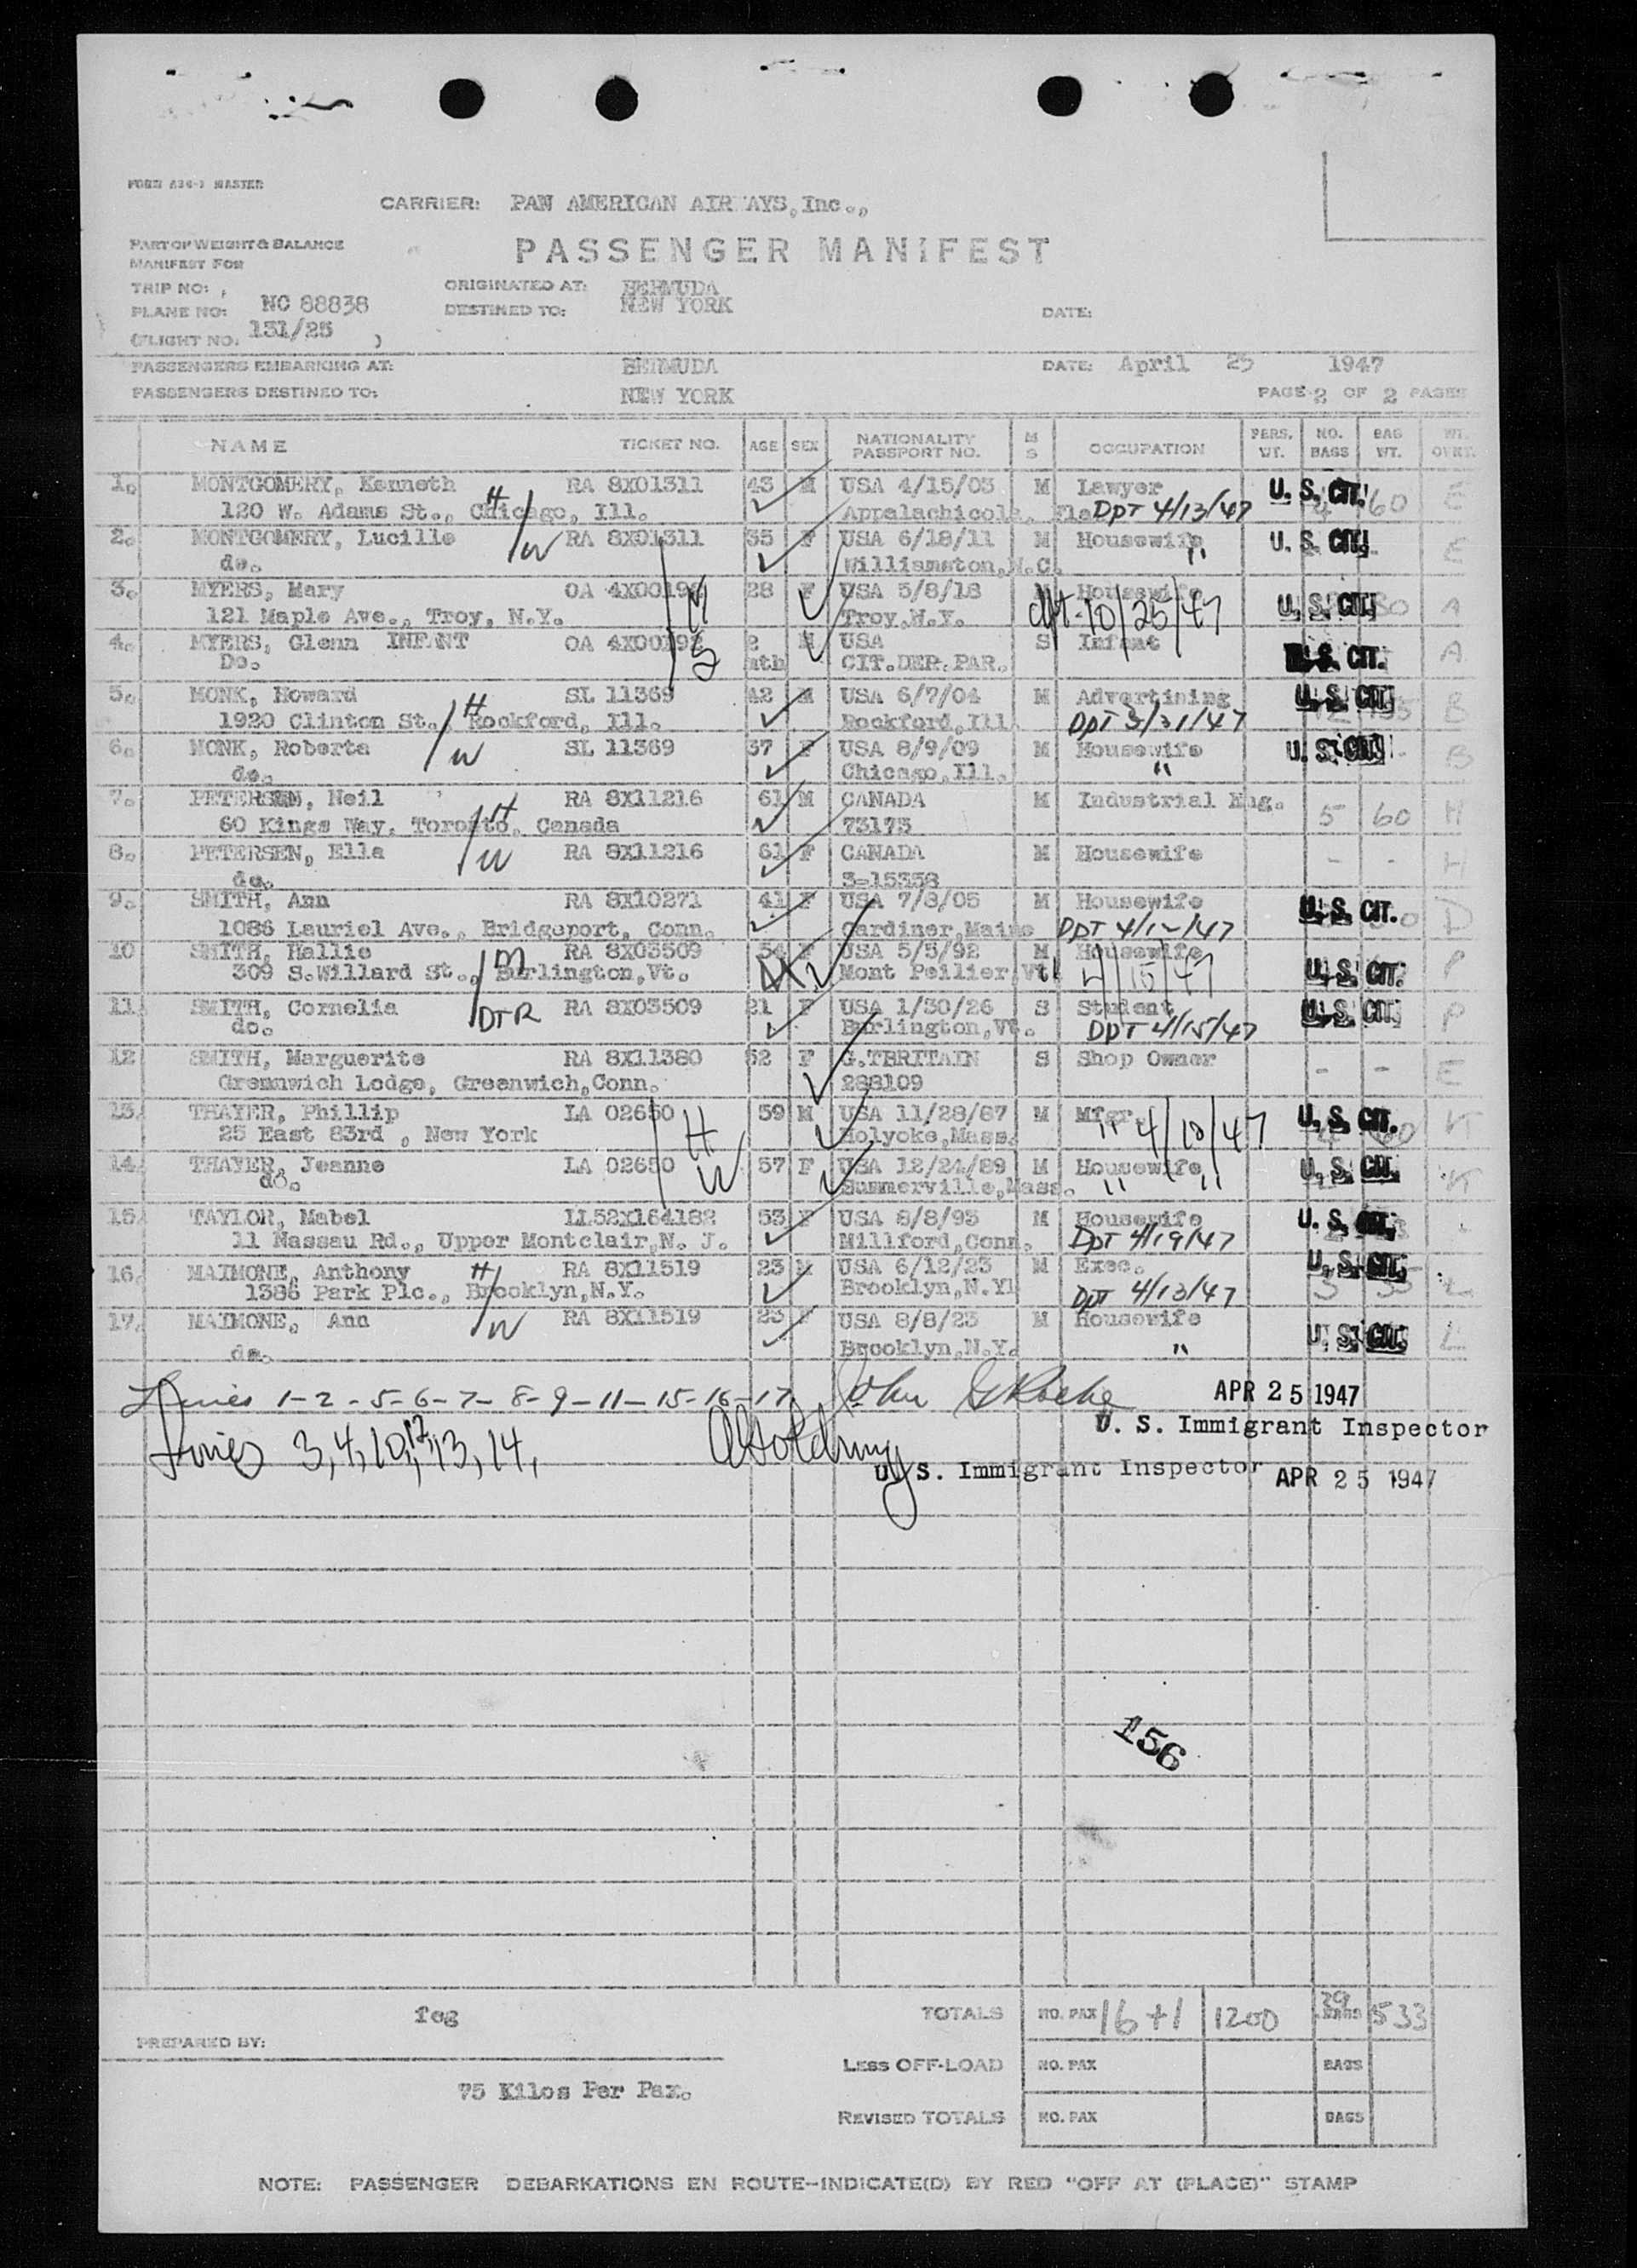 FORM A34-3 MASTER
CARRIER: PAN AMERICAN AIR AYS, Inc.,
PART OF WEIGHT & BALANCE
MANIFEST FOR
PASSENGER MANIFEST
TRIP NO: ORIGINATED AT: BERMUDA
PLANE NO: NC 88838 DESTINED TO: NEW YORK DATE:
(FLIGHT NO. 131/25 )
PASSENGERS EMBARKING AT: BERMUDA DATE: April 25 1947
PASSENGERS DESTINED TO: NEW YORK PAGE 2 OF 2 PAGES
NAME TICKET NO. AGE SEX NATIONALITY PASSPORT NO. M S OCCUPATION PERS. WT. NO. BAGS BAG WT. WT.
1. MONTGOMERY, Kenneth RA 8X01311 43 M USA 4/15/03 M Lawyer U. S. CIT. 60 E
120 W. Adams St., Chicago, Ill. H Appalachicola, Fla DPT 4/13/47
2. MONTGOMERY, Lucille W RA 8X01311 35 F USA 6/18/11 M Housewife " U. S. CIT. E
do. Williamston, N.C.
3. MYERS, Mary OA 4X00192 28 F USA 5/8/18 Housewife U. S. CIT. A
121 Maple Ave., Troy, N.Y. Troy, N.Y. dpt-10/25/47
4. MYERS, Glenn INFANT OA 4X00192 2 M USA S Infant U. S. CIT. A
Do. mth CIT.DEP.PAR.
5. MONK, Howard SL 11369 42 M USA 6/7/04 M Advertining U. S. CIT. B
1920 Clinton St., Rockford, Ill. H Rockford, Ill. DPT 3/31/47
6. MONK, Roberta W SL 11369 37 F USA 8/9/09 M Housewife U. S. CIT. B
do. Chicago, Ill. "
7. PETERSEN, Neil RA 8X11216 61 M CANADA M Industrial Eng. 5 60 H
60 Kings Way, Toronto, Canada H 73173
8. PETERSEN, Ella W RA 8X11216 61 F CANADA M Housewife - - H
do. 3-15358
9. SMITH, Ann RA 8X10271 41 F USA 7/8/05 M Housewife U. S. CIT. D
1086 Lauriel Ave., Bridgeport, Conn. Gardiner, Maine DPT 4/12/47
10 SMITH, Hallie M RA 8X03509 54 F USA 5/5/92 M Housewife U. S. CIT. P
309 S.Willard St., Burlington, Vt. Mont Peilier, Vt 4/15/47
11 SMITH, Cornelia DTR RA 8X03509 21 F USA 1/30/26 S Student U. S. CIT. P
do. Burlington, Vt. DPT 4/15/47
12 SMITH, Marguerite RA 8X11380 52 F G.TBRITAIN S Shop Owner - - E
Greenwich Lodge, Greenwich, Conn. 288109
13. THAYER, Phillip LA 02650 H 59 M USA 11/28/87 M Mfgr. U. S. CIT. K
25 East 83rd , New York Holyoke, Mass. " 4/10/47
14. THAYER, Jeanne LA 02650 W 57 F USA 12/24/89 M Housewife U. S. CIT. K
do. Summerville, Mass. " "
15. TAYLOR, Mabel LL52X164182 53 F USA 8/8/93 M Housewife U. S. CIT.
11 Nassau Rd., Upper Montclair, N. J. Millford, Conn. DPT 4/19/47
16. MAIMONE, Anthony H RA 8X11519 23 M USA 6/12/23 M Exec. U. S. CIT. 3 35 L
1386 Park Plc., Brooklyn, N.Y. Brooklyn, N.Y. DPT 4/13/47
17. MAIMONE, Ann W RA 8X11519 23 F USA 8/8/23 M Housewife U. S. CIT. L
do. Brooklyn, N.Y. "
Lines 1-2-5-6-7-8-9-11-15-16-17 John G Roche APR 25 1947
U. S. Immigrant Inspector
Lines 3, 4, 10, 12, 13, 14,
U. S. Immigrant Inspector APR 25 1947
156
feg TOTALS NO. PAX 16+1 1200 39 BAGS 533
PREPARED BY:
LESS OFF-LOAD NO. PAX BAGS
75 Kilos Per Pax.
REVISED TOTALS NO. PAX BAGS
NOTE: PASSENGER DEBARKATIONS EN ROUTE-INDICATE(D) BY RED "OFF AT (PLACE)" STAMP